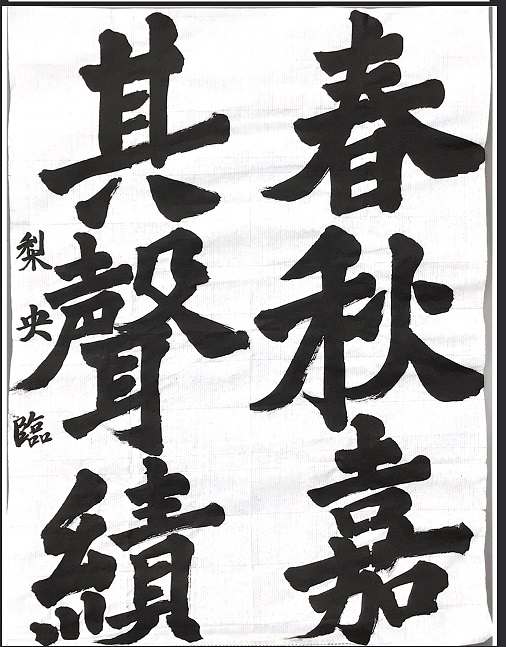 春秋嘉
其聲績
梨央臨